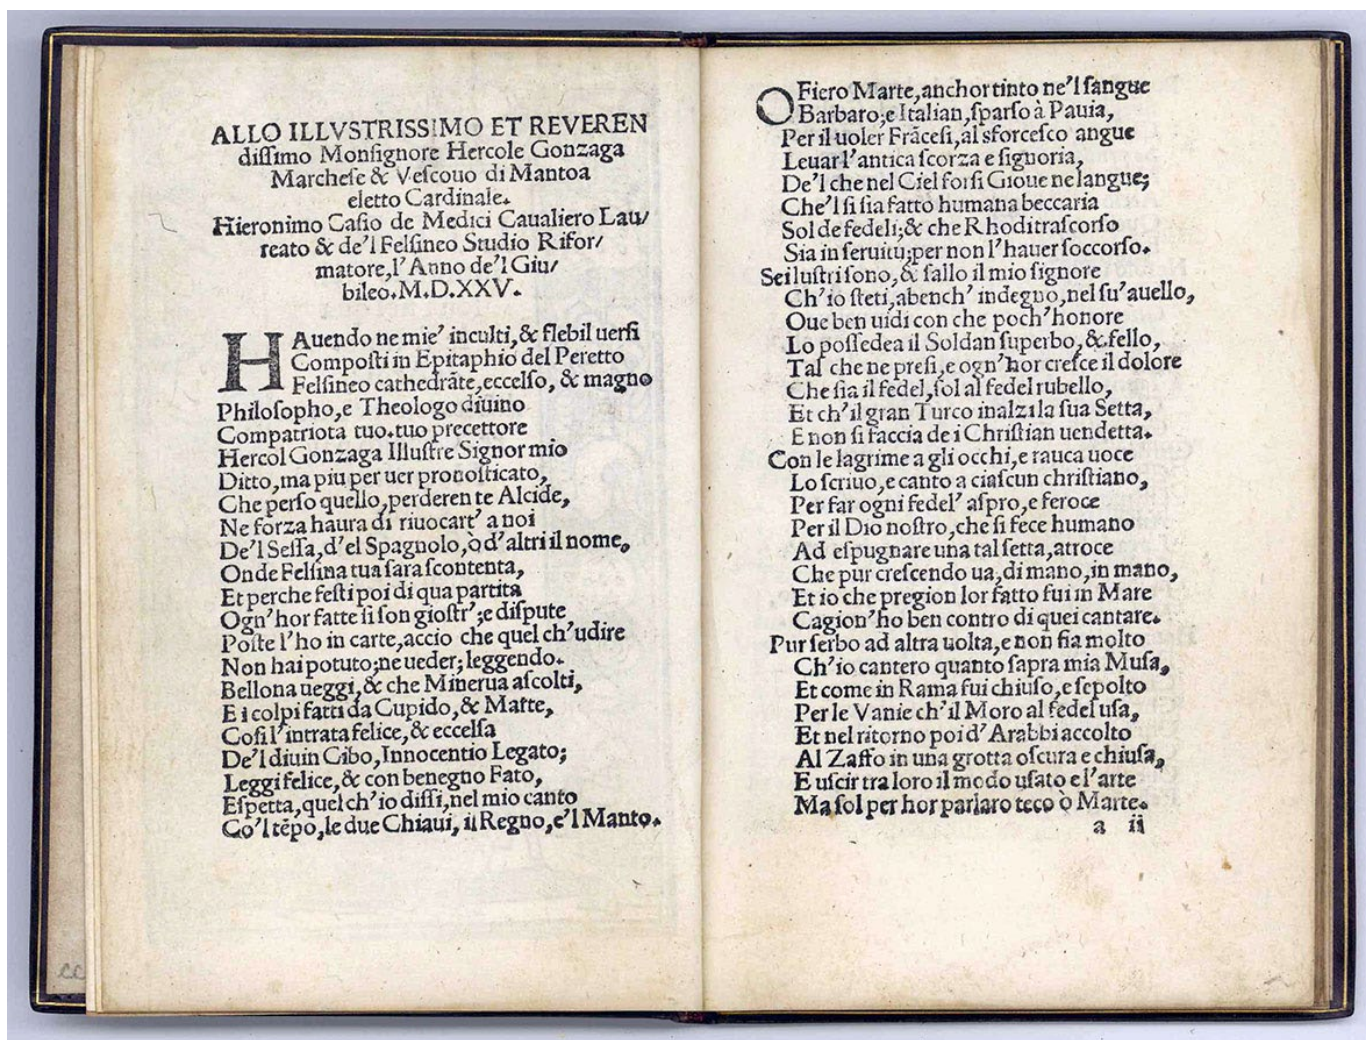 ALLO ILLVSTRISSIMO ET REVEREN
dissimo Monsignore Hercole Gonzaga
Marchese & Vescouo di Mantoa
eletto Cardinale.
Hieronimo Casio de Medici Caualiero Lau/
reato & de'l Felsineo Studio Rifor/
matore, l'Anno de'l Giu/
bileo. M.D.XXV.
HAuendo ne mie' inculti, & flebil uersi
Composti in Epitaphio del Peretto
Felsineo cathedrãte, eccelso, & magno
Philosopho, e Theologo diuino
Compatriota tuo. tuo precettore
Hercol Gonzaga Illustre Signor mio
Ditto, ma piu per uer pronosticato,
Che perso quello, perderen te Alcide,
Ne forza haura di riuocart' a noi
De'l Sessa, d'el Spagnolo, ò d'altri il nome,
Onde Felsina tua sara scontenta,
Et perche festi poi di qua partita
Ogn'hor fatte si son giostr'; e dispute
Poste l'ho in carte, accio che quel ch'udire
Non hai potuto; ne ueder; leggendo.
Bellona ueggi, & che Minerua ascolti,
E i colpi fatti da Cupido, & Matte,
Cosi l'intrata felice, & eccelsa
De'l diuin Cibo, Innocentio Legato;
Leggi felice, & con benegno Fato,
Espetta, quel ch'io dissi, nel mio canto
Co'l tẽpo, le due Chiaui, il Regno, e'l Manto.
O Fiero Marte, anchor tinto ne'l sangue
Barbaro; e Italian, sparso à Pauia,
Per il uoler Frãcesi, al sforcesco angue
Leuar l'antica scorza e signoria,
De'l che nel Ciel forsi Gioue ne langue;
Che'l si sia fatto humana beccaria
Sol de fedeli; & che Rhodi trascorso
Sia in seruitu; per non l'hauer soccorso.
Sei lustri sono, & sallo il mio signore
Ch'io steti, abench' indegno, nel su' auello,
Oue ben uidi con che poch'honore
Lo possedea il Soldan superbo, & fello,
Tal che ne presi, e ogn'hor cresce il dolore
Che sia il fedel, sol al fedel rubello,
Et ch'il gran Turco inalzi la sua Setta,
E non si faccia de i Christian uendetta.
Con le lagrime a gli occhi, e rauca uoce
Lo scriuo, e canto a ciascun christiano,
Per far ogni fedel' aspro, e feroce
Per il Dio nostro, che si fece humano
Ad espugnare una tal setta, atroce
Che pur crescendo ua, di mano, in mano,
Et io che pregion lor fatto fui in Mare
Cagion' ho ben contro di quei cantare.
Pur serbo ad altra uolta, e non fia molto
Ch'io cantero quanto sapra mia Musa,
Et come in Rama fui chiuso, e sepolto
Per le Vanie ch'il Moro al fedel usa,
Et nel ritorno poi d'Arabbi accolto
Al Zaffo in una grotta oscura e chiusa,
E uscir tra loro il modo usato e l'arte
Ma sol per hor parlaro teco ò Marte.
a ii